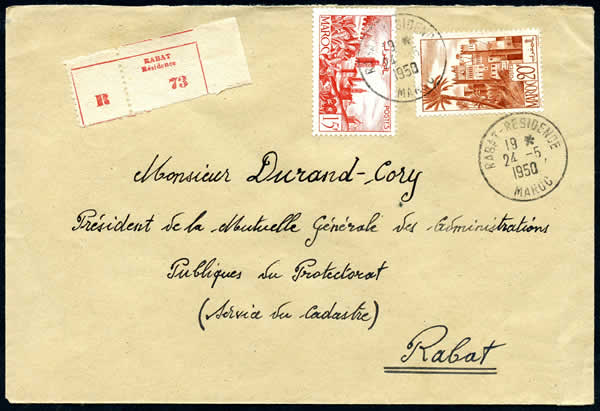 RABAT
Résidence
R
73
MAROC
15F
POSTES
MAROC 20F
RABAT-RESIDENCE
19 *
24 -5
1950
MAROC
RABAT-RESIDENCE
19 *
24 -5
1950
MAROC
Monsieur Durand-Cory
Président de la Mutuelle Générale des Administrations
Publiques du Protectorat
(Service du Cadastre)
Rabat